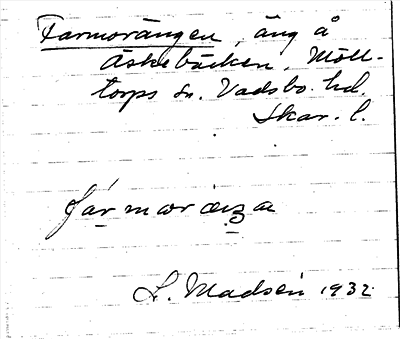 Farmorängen, äng å
Äskebäcken, Möll-
torps sn. Vadsbo. hd.
Skar. l.
L. Madsén 1932